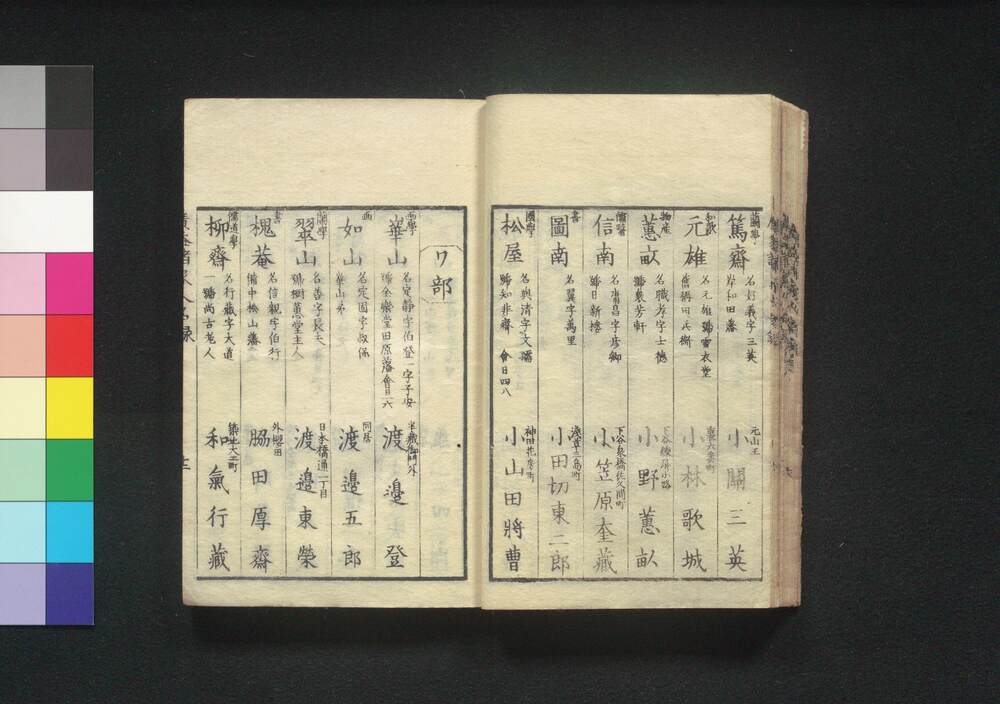 蘭學
篤齋
名好義字三英
岸和田藩
元山王
小關三英
和歌
元雄
名元雄號雪衣堂
舊稱田兵衛
裏六番町
小林歌城
物産
蕙畝
名職孝字士德
號衆芳軒
下谷練塀小路
小野蕙畝
儒醫
信南
名書昌字彦卿
號日新樓
下谷泉橋佐久間町
小笠原奎藏
書
圖南
名翼字萬里
淺草三島町
小田切東二郎
國學
松屋
名與清字文儒
號知非齋 會日四八
神田花房町
小山田將曹
ワ部
画學
華山
名定靜字伯登一字子安
號全樂堂田原藩會日一六
半藏御門外
渡邉登
画
如山
名定固字叔保
華山弟
同居
渡邉五郎
蘭學
翠山
名善字長夫
號樹蕙堂主人
日本橋通二丁目
渡邉東榮
書
槐菴
名信親字伯行
備中松山藩
外櫻田
脇田厚齋
儒道學
柳齋
名行藏字大道
一號尚古老人
築地大工町
和氣行藏